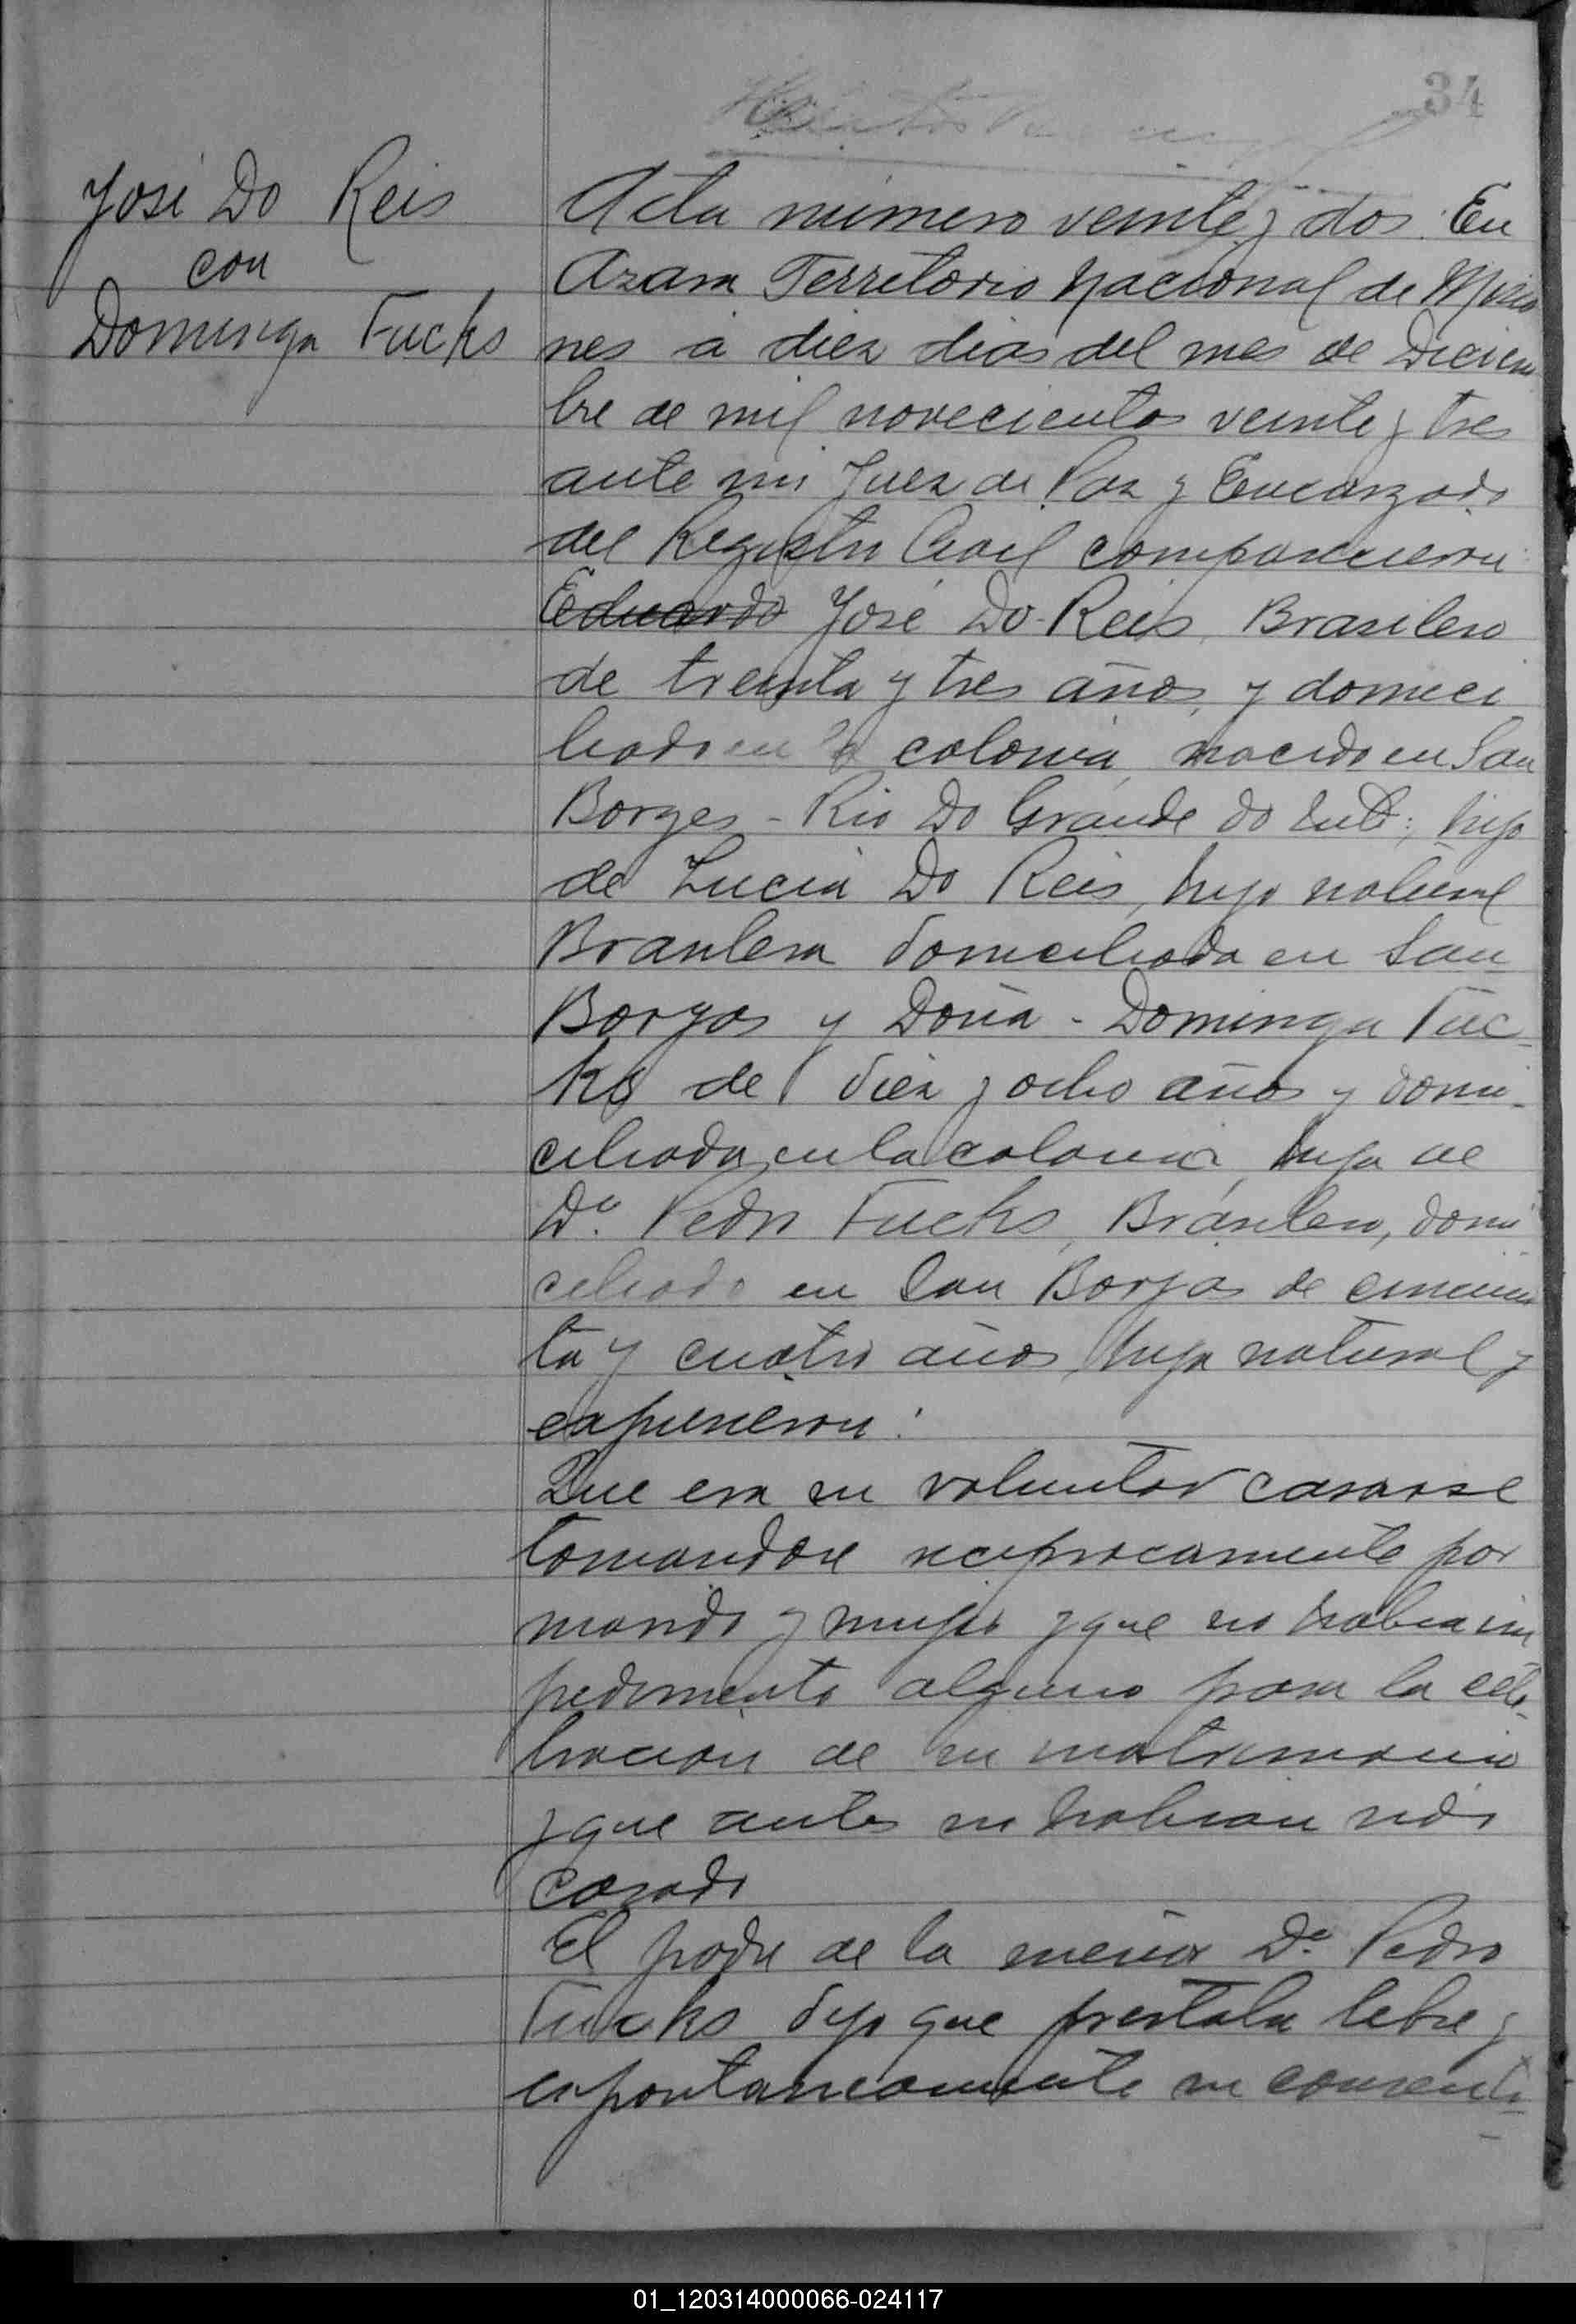 34
José Do Reis
con
Dominga Fucks
Acta número veinte y dos. En
Azara Territorio Nacional de Misio
nes a diez dias del mes de Diciem
bre de mil novecientos veinte y tres
ante mi Juez de Paz y Encargado
del Registro Civil comparecieron
Eduardo José Do Reis, Brasilero
de treinta y tres años, y domici
liado en la colonia, nacido en San
Borges - Rio Do Grande do Sul; hijo
de Lucia Do Reis, hijo natural
Brasilera domiciliada en San
Borgas y Doña - Dominga Fuc
ks de diez y ocho años y domi-
ciliada en la colonia, hija de
Dn. Pedro Fucks, Brasilero, domi
ciliado en San Borjas de cincuen
ta y cuatro años, hija natural y
expusieron:
Que era su voluntad casarse
tomandose reciprocamente por
marido y mujer y que no habia im
pedimento alguno para la cele-
bracion de su matrimonio
y que antes no habian sido
casado
El padre de la menor Dn. Pedro
Fucks dijo que prestaba libre y
espontaneamente su consenti-
01_120314000066-024117